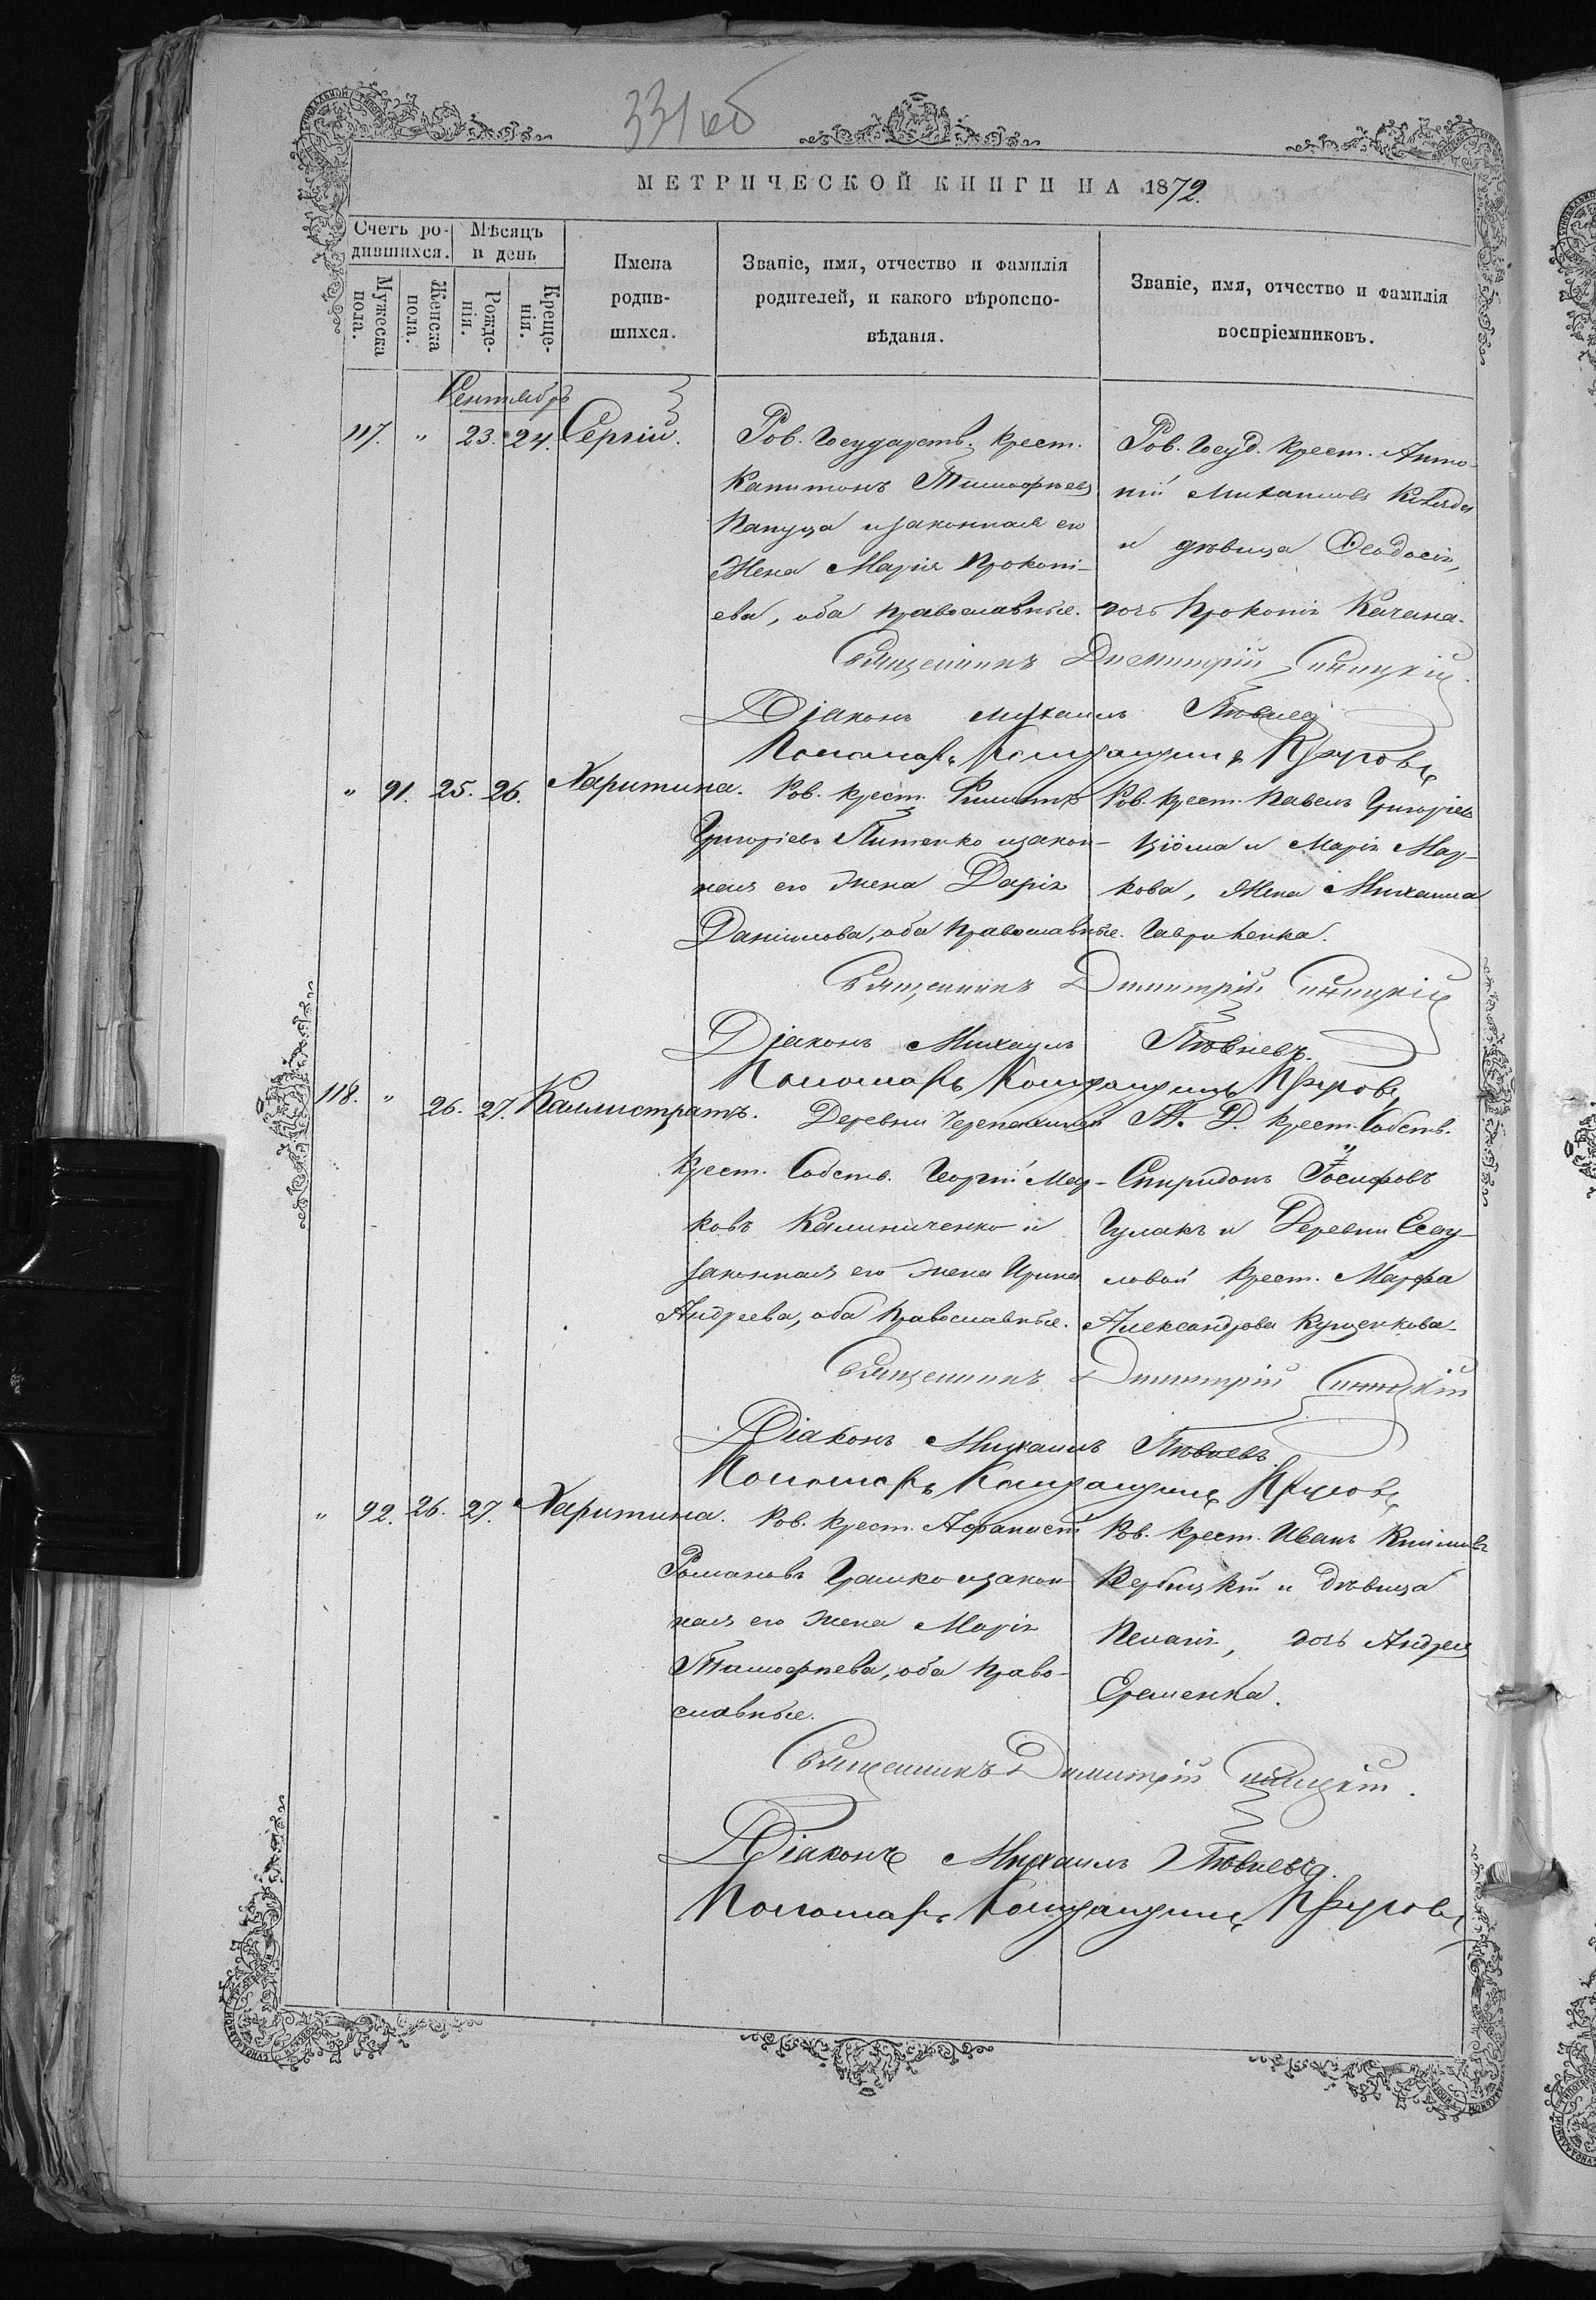 331 об
МЕТРИЧЕСКОЙ КНИГИ НА 1872.
Счетъ ро-
дившихся.
Мѣсяцъ
и день
Мужеска
пола.
Женска
пола.
Рожде-
нія.
Креще-
нія.
Имена
родив-
шихся.
Званіе, имя, отчество и фамилія
родителей, и какого вѣроиспо-
вѣданія.
Званіе, имя, отчество и фамилія
воспріемниковъ.
Сентябрь
117. " 23. 24. Сергій.
Роб. Государств. крест.
Капитонъ Тимофѣевъ
Капуца и законная его
Жена Марія Прокопі-
ева, оба православные.
Роб. Госуд. крест. Анто-
ній Михаиловъ
и дѣвица Ѳеодосія,
дочь Прокопія Качана.
Священникъ Димитрій Синицкій.
Діаконъ Михаилъ Пѣвневъ
Пономарь
" 91. 25. 26. Харитина.
Роб. крест. Филиппъ
Григоріевъ Литенко и закон-
ная его жена Дарія
Даніилова, оба Православные.
Роб. крест. Павелъ Григоріевъ
Ізіома и Марія Мар-
кова, Жена Михаила
Гавриленка.
Священникъ Димитрій Синицкій
Діаконъ Михаилъ Пѣвневъ.
Пономарь
118. " 26. 27. Каллистратъ.
Деревни
крест. Собств. Георгій Мар-
ковъ Калиниченко и
законная его жена Ирина
Андреева, оба Православные.
Т. Д. крест. Собств.
Спиридонъ Іосифовъ
Гулакъ и Деревни Есау-
ловой крест. Марфа
Александрова Куценкова
Священникъ Димитрій Синицкій
Діаконъ Михаилъ Пѣвневъ
Пономарь
" 92. 26. 27. Харитина.
Роб. крест. Афанасій
Романовъ Грашко и закон
ная его жена Марія
Тимофеева, оба Право-
славные.
Роб. крест. Иванъ
Вербицкій и дѣвица
Пелагія, дочь Андрея
Еременка.
Священникъ Димитрій Синицкій.
Діаконъ Михаилъ Пѣвневъ.
Пономарь